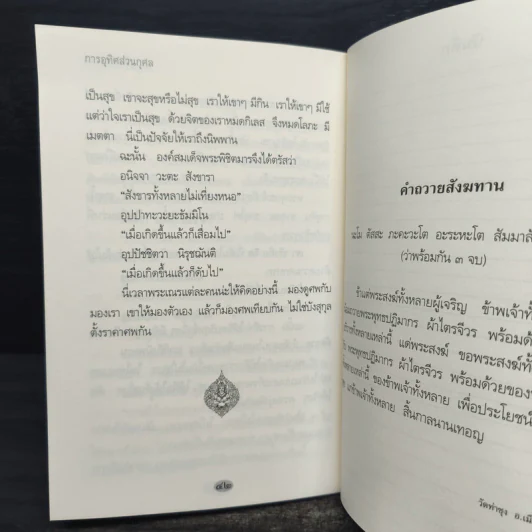 การอุทิศส่วนกุศล
เป็นสุข เขาจะสุขหรือไม่สุข เราให้เขาๆ มีกิน เราให้เขาๆ มีใช้
แต่ว่าใจเราเป็นสุข ด้วยจิตของเราหมดกิเลส จึงหมดโลภะ มี
เมตตา นี่เป็นปัจจัยให้เราถึงนิพพาน
ฉะนั้น องค์สมเด็จพระพิชิตมารจึงได้ตรัสว่า
อนิจจา วะตะ สังขารา
“สังขารทั้งหลายไม่เที่ยงหนอ”
อุปปาทะวะยะธัมมิโน
“เมื่อเกิดขึ้นแล้วก็เสื่อมไป”
อุปปัชชิตวา นิรุชฌันติ
“เมื่อเกิดขึ้นแล้วก็ดับไป”
นี่เวลาพระเณรแต่ละคนน่ะให้คิดอย่างนี้ มองดูศพกับ
มองเรา เขาให้มองตัวเอง แล้วก็มองศพเทียบกัน ไม่ใช่บังสุกุล
ตั้งราคาศพกัน
คำถวายสังฆทาน
นะโม ตัสสะ ภะคะวะโต อะระหะโต สัมมาสั
(ว่าพร้อมกัน ๓ จบ)
ข้าแต่พระสงฆ์ทั้งหลายผู้เจริญ ข้าพเจ้าทั้
พระพุทธปฏิมากร ผ้าไตรจีวร พร้อมด้
เหล่านี้ แด่พระสงฆ์ ขอพระสงฆ์ทั้
พระพุทธปฏิมากร ผ้าไตรจีวร พร้อมด้วยของ
เหล่านี้ ของข้าพเจ้าทั้งหลาย เพื่อประโยชน์
ข้าพเจ้าทั้งหลาย สิ้นกาลนานเทอญ
วัดท่าซุง อ.เมื